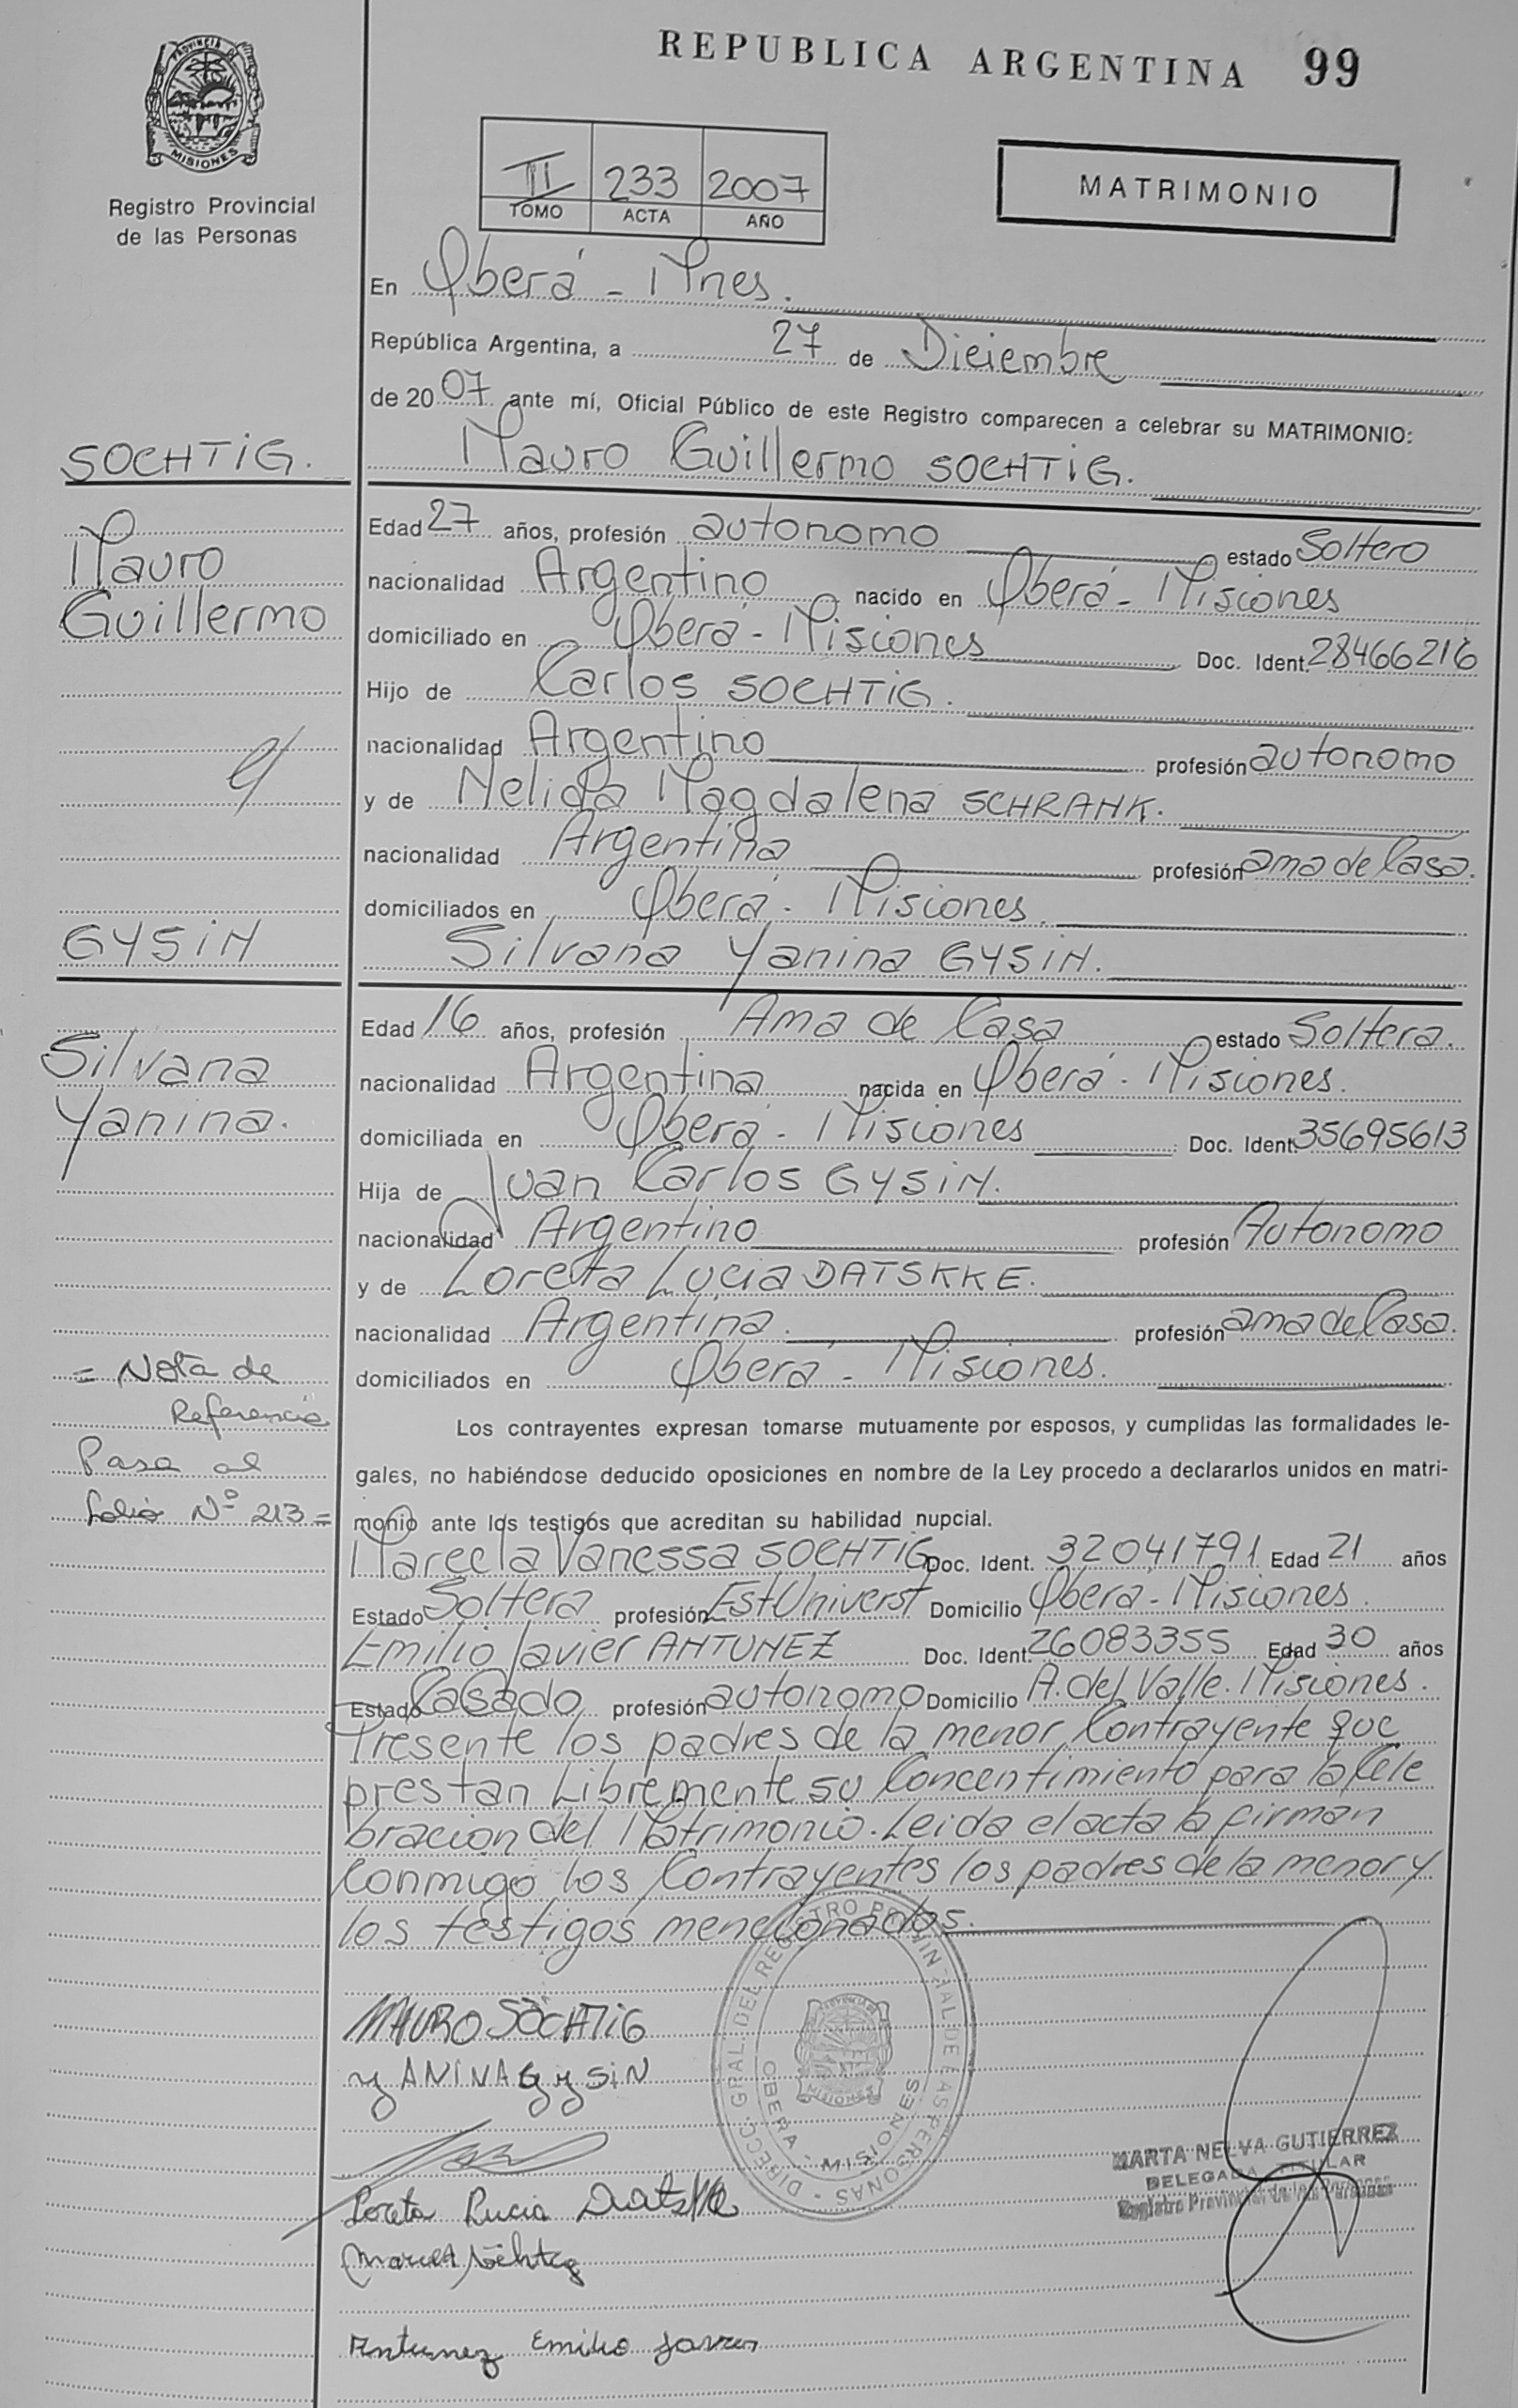 REPUBLICA ARGENTINA 99
PROVINCIA DE
MISIONES
Registro Provincial
de las Personas
II 233 2007
TOMO ACTA AÑO
MATRIMONIO
En Oberá - Mnes.
República Argentina, a 27 de Diciembre
de 2007 ante mí, Oficial Público de este Registro comparecen a celebrar su MATRIMONIO:
SOCHTIG. Mauro Guillermo SOCHTIG.
Edad 27 años, profesión autonomo estado Soltero
Mauro nacionalidad Argentino nacido en Oberá - Misiones
Guillermo domiciliado en Oberá - Misiones Doc. Ident. 28466216
Hijo de Carlos SOCHTIG.
nacionalidad Argentino profesión autonomo
y
y de Nelida Magdalena SCHRANK.
nacionalidad Argentina profesión ama de Casa.
domiciliados en Oberá - Misiones.
GYSIN Silvana Yanina GYSIN.
Edad 16 años, profesión Ama de Casa estado Soltera.
Silvana nacionalidad Argentina nacida en Oberá - Misiones.
Yanina. domiciliada en Oberá - Misiones Doc. Ident. 35695613
Hija de Juan Carlos GYSIN.
nacionalidad Argentino profesión Autonomo
y de Loreta Lucia DATSKKE.
nacionalidad Argentina. profesión ama de Casa.
= Nota de domiciliados en Oberá - Misiones.
Referencia Los contrayentes expresan tomarse mutuamente por esposos, y cumplidas las formalidades le-
Pasa al gales, no habiéndose deducido oposiciones en nombre de la Ley procedo a declararlos unidos en matri-
folio Nº 213 = monio ante los testigos que acreditan su habilidad nupcial.
Marecla Vanessa SOCHTIG Doc. Ident. 32041791 Edad 21 años
Estado Soltera profesión Est Universt Domicilio Oberá - Misiones.
Emilio Javier ANTUNEZ Doc. Ident. 26083355 Edad 30 años
Estado Casado profesión autonomo Domicilio A. del Valle. Misiones.
Presente los padres de la menor Contrayente que
prestan Libremente su Concentimiento para la Cele
bracion del Matrimonio. Leida el acta la firman
Conmigo los Contrayentes los padres de la menor y
los testigos mencionados.
MAURO SÖCHTIG
yANINA GySiN
Loreta Lucia Datskke
Antunez Emilio Javier
DIRECC. GRAL. DEL REGISTRO PROVINCIAL DE LAS PERSONAS
OBERA - MISIONES
MARTA NELVA GUTIERREZ
DELEGADA TITULAR
Registro Provincial de las Personas